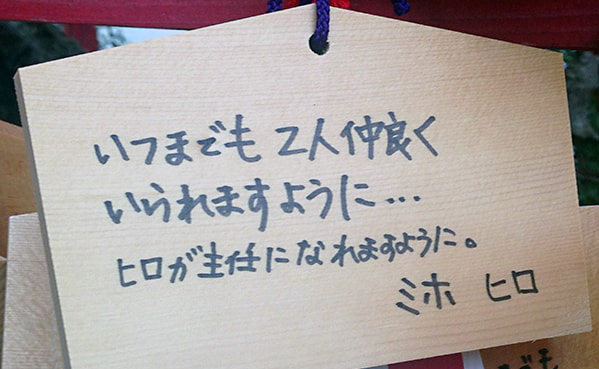 いつまでも 2人仲良く
いられますように…
ヒロが主任になれますように。
ミホ ヒロ